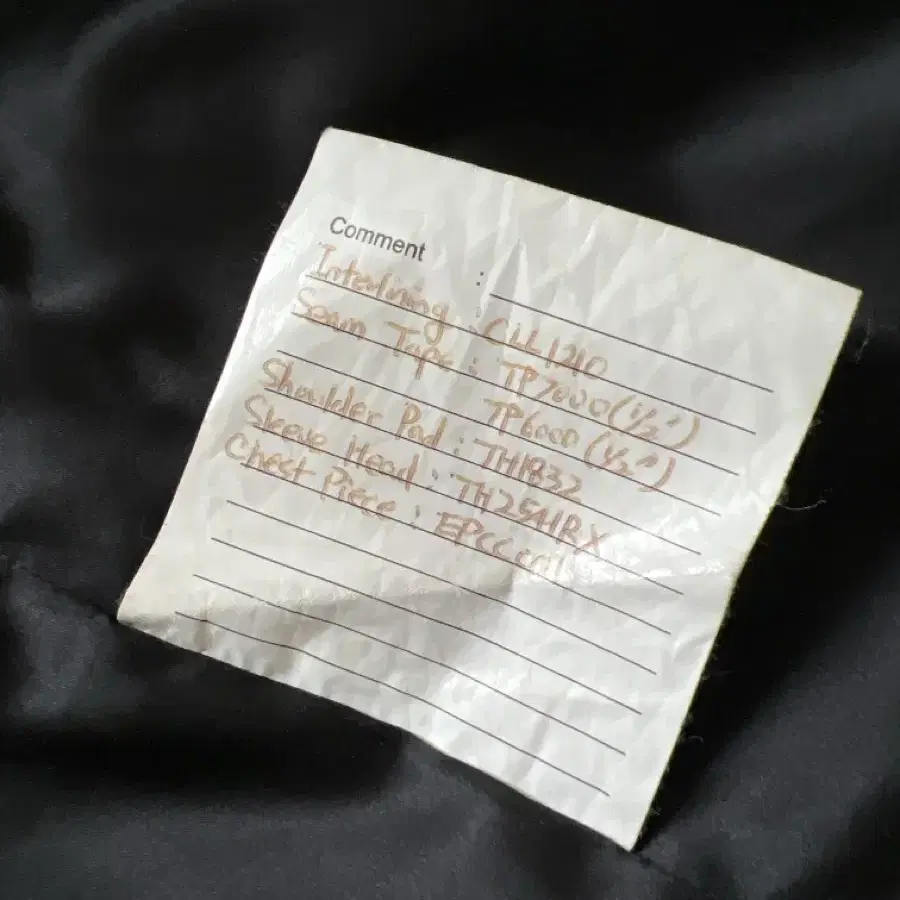 Comment :
Interlining : CLL1210
Seam Tape : TP7000(1/2")
TP6000 (1/2")
Shoulder Pad : TH1832
Sleeve Head : TH25HRX
Chest Piece :